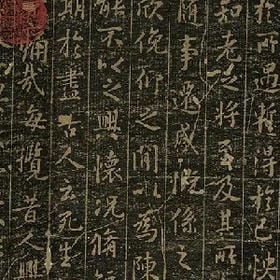 於所遇暫得於己
知老之將至及其所
隨事遷感慨係之
欣俛仰之閒以為陳
能不以之興懷況脩
期於盡古人云死生
痛哉每攬昔人